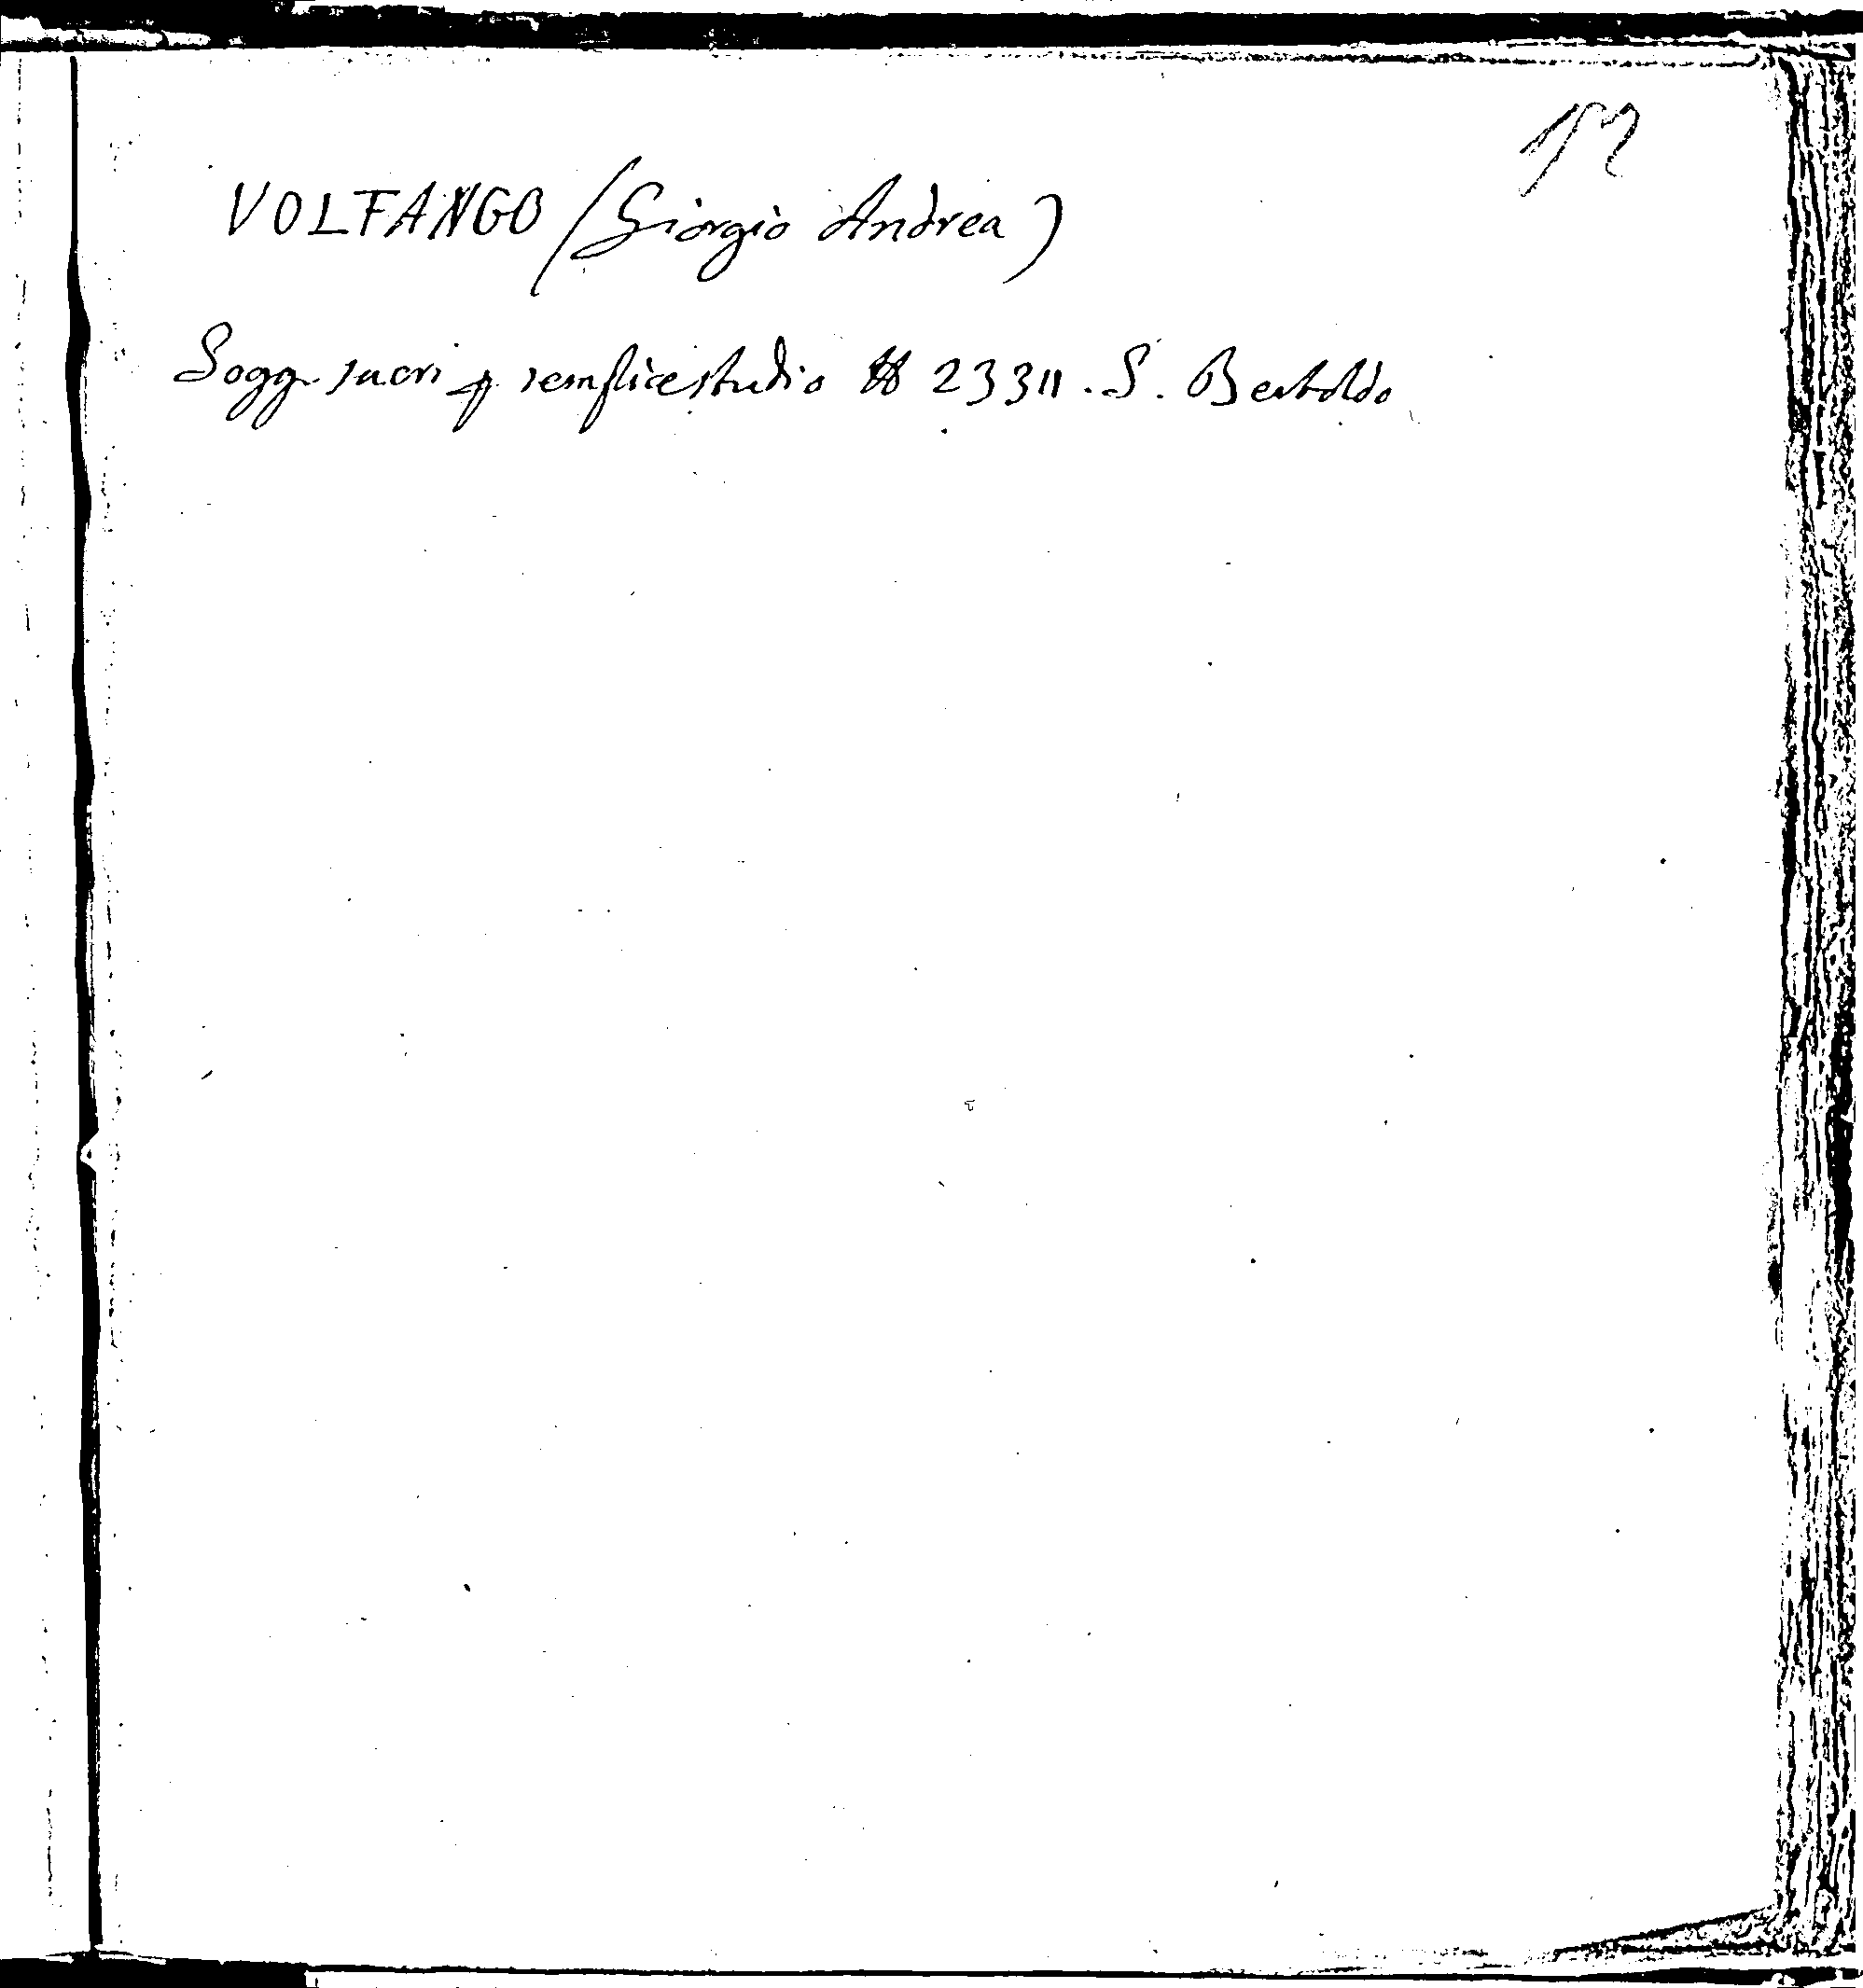 152
VOLFANGO (Giorgio Andrea)
Sogg. sacri p semplice studio 23311. S. Bertoldo